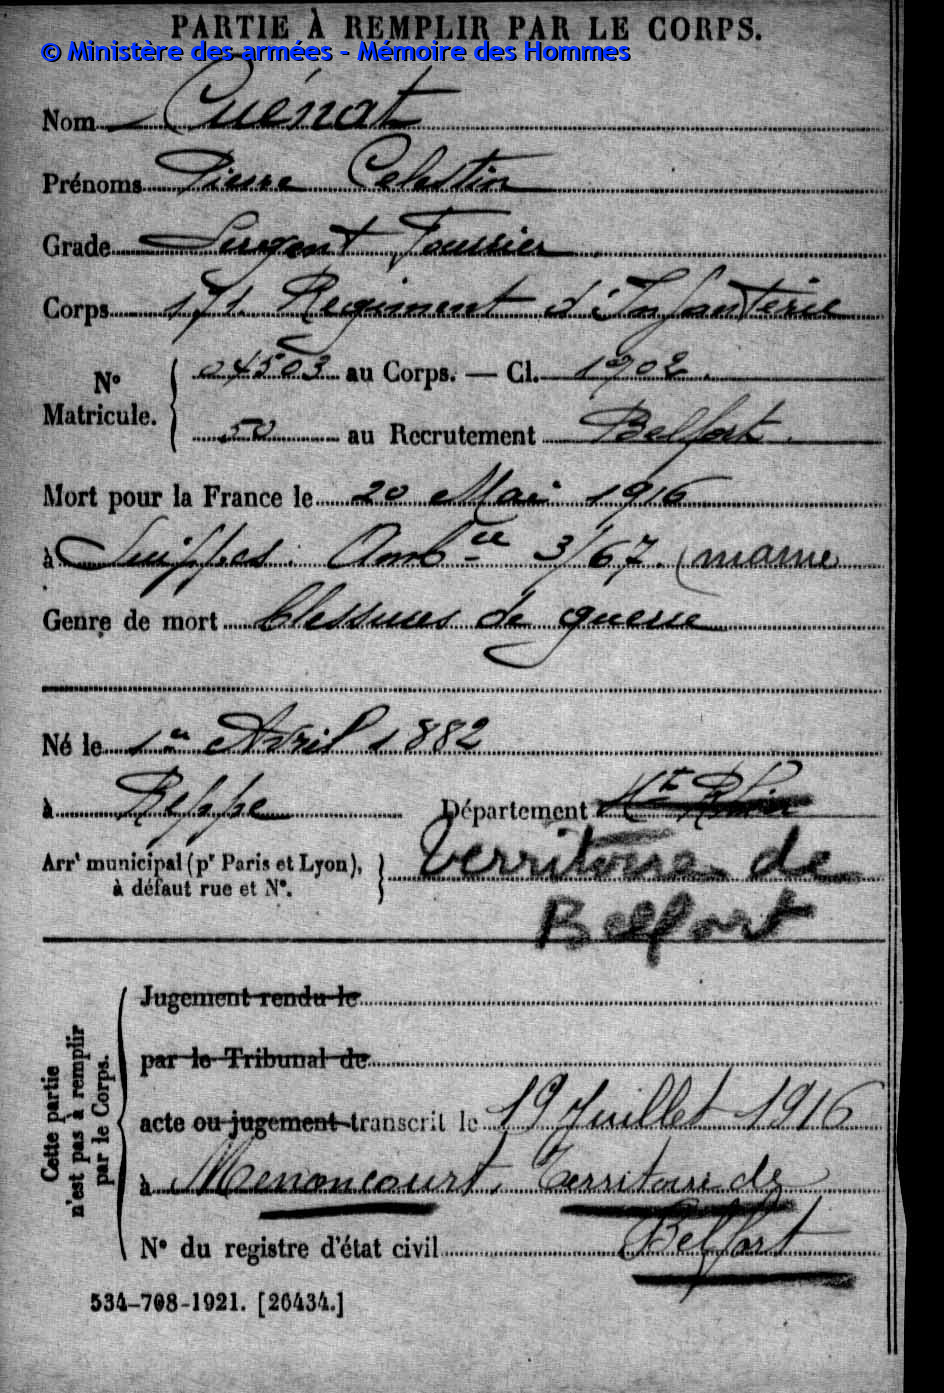 PARTIE À REMPLIR PAR LE CORPS.
© Ministère des armées - Mémoire des Hommes
Nom Cuénat
Prénoms Pierre Celestin
Grade Sergent Fourrier
Corps 171. Regiment d'Infanterie
N° Matricule. { 04503 au Corps. — Cl. 1902.
50 au Recrutement Belfort.
Mort pour la France le 20 Mai 1916
à Suippes. Amb ce 3/67. (marne
Genre de mort blessures de guerre
Né le 1er Avril 1882
à Reppe Département Ht Rhin
Arrt municipal (pr Paris et Lyon), à défaut rue et N°. } Territoire de
Belfort
Cette partie n'est pas à remplir par le Corps.
Jugement rendu le
par le Tribunal de
acte ou jugement transcrit le 19 Juillet 1916
à Menoncourt, Territoire de
N° du registre d'état civil Belfort
534-708-1921. [26434.]